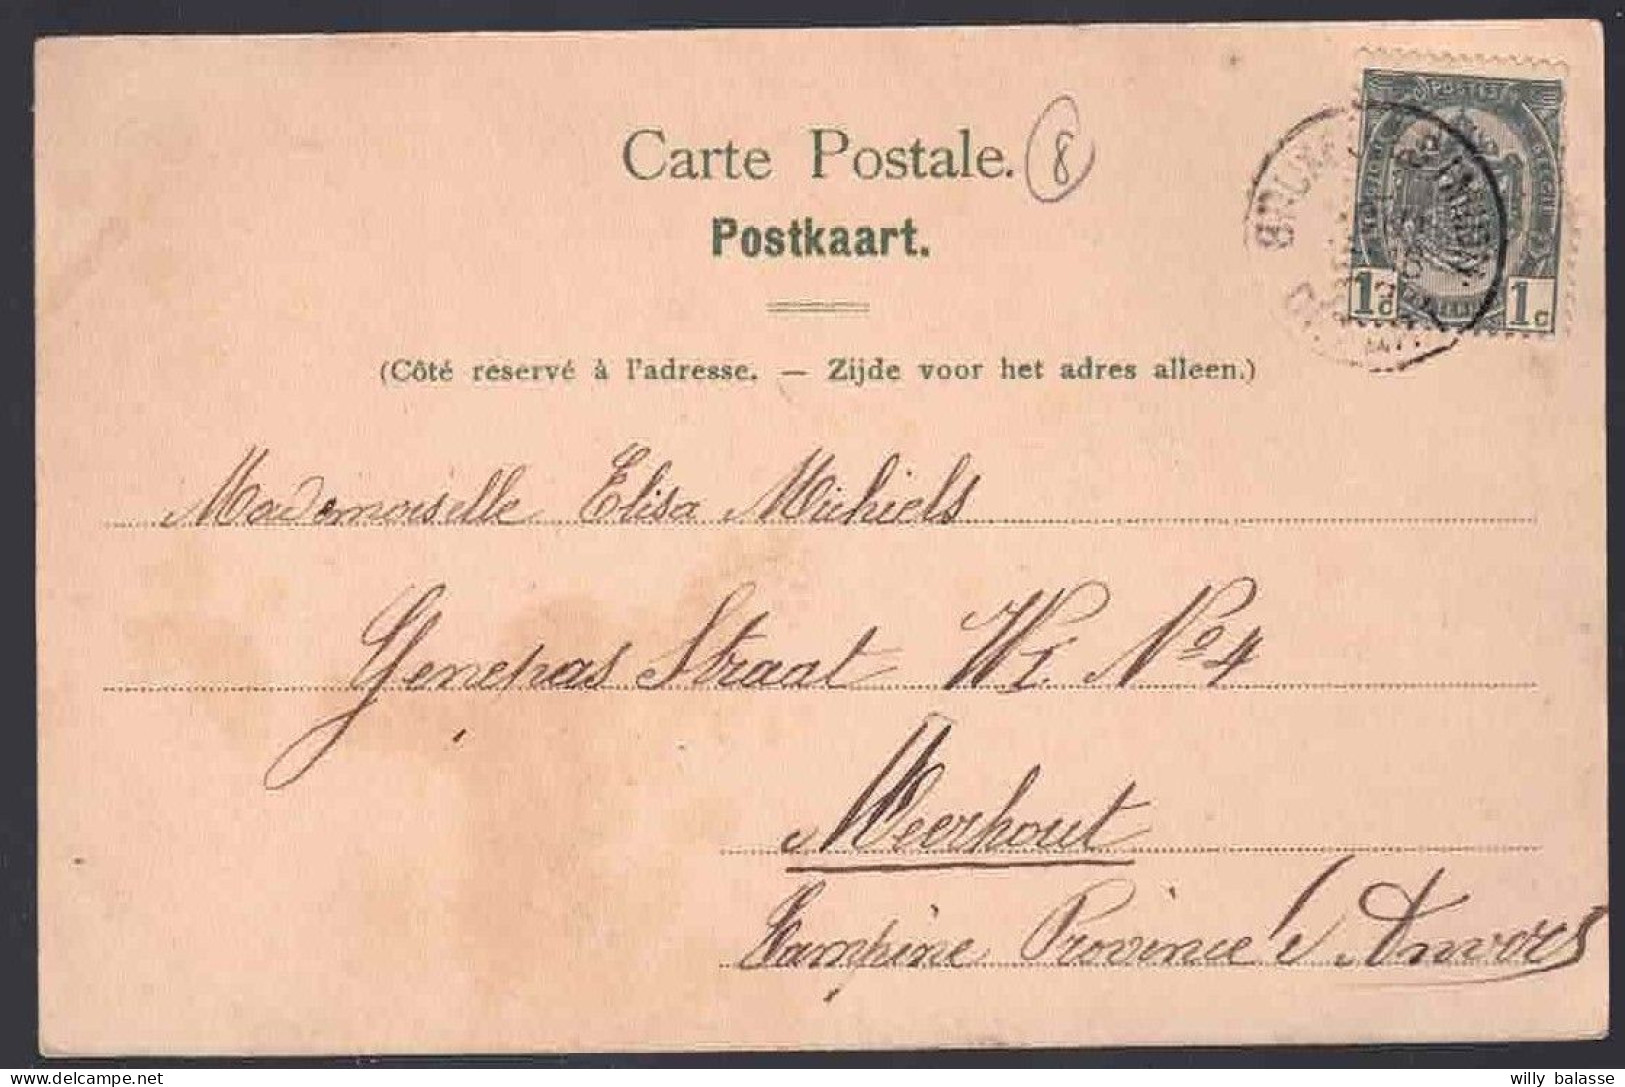 Carte Postale.
8
Postkaart.
POSTES
1c 1c
BRUX
(Côté reservé à l'adresse. — Zijde voor het adres alleen.)
Mademoiselle Elisa Michiels
Genepas Straat W1. No 4
Meerhout
Kampine Province d'Anvers
willy balasse